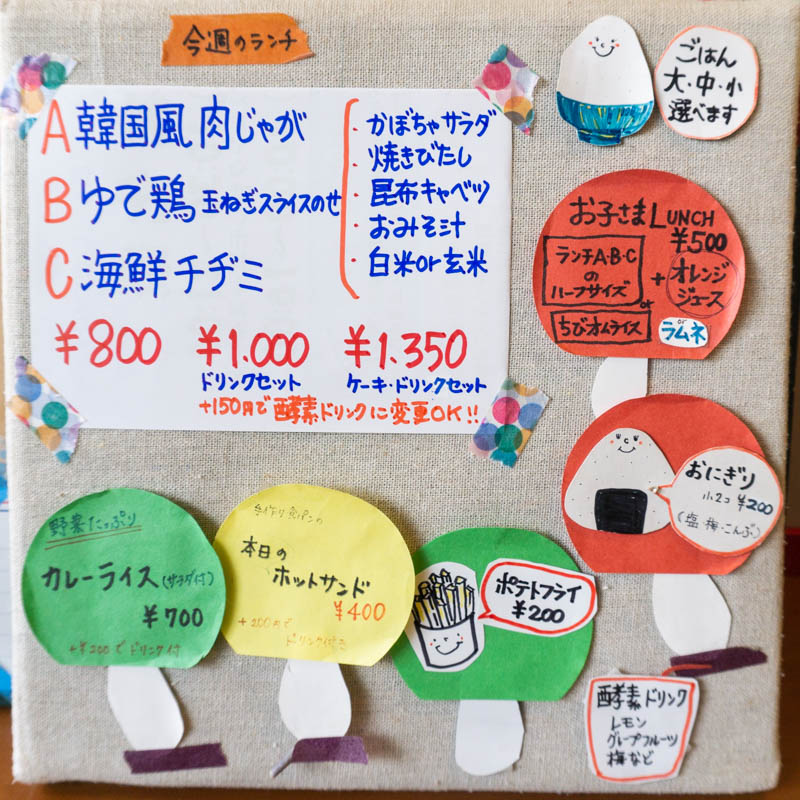 今週のランチ
A 韓国風 肉じゃが
B ゆで鶏 玉ねぎスライスのせ
C 海鮮チヂミ
・かぼちゃサラダ
・焼きびたし
・昆布キャベツ
・おみそ汁
・白米or玄米
¥800 ¥1.000 ¥1.350
ドリンクセット ケーキ・ドリンクセット
+150円で酵素ドリンクに変更OK!!
ごはん
大・中・小
選べます
お子さまLUNCH
¥500
ランチA・B・C
の
ハーフサイズ
or
ちびオムライス
+オレンジ
ジュース
or
ラムネ
おにぎり
小2コ ¥200
(塩・梅・こんぶ)
野菜たっぷり
カレーライス(サラダ付)
¥700
+¥200でドリンク付
手作り食パンの
本日の
ホットサンド
¥400
+200円で
ドリンク付き
ポテトフライ
¥200
酵素ドリンク
レモン
グレープフルーツ
梅など